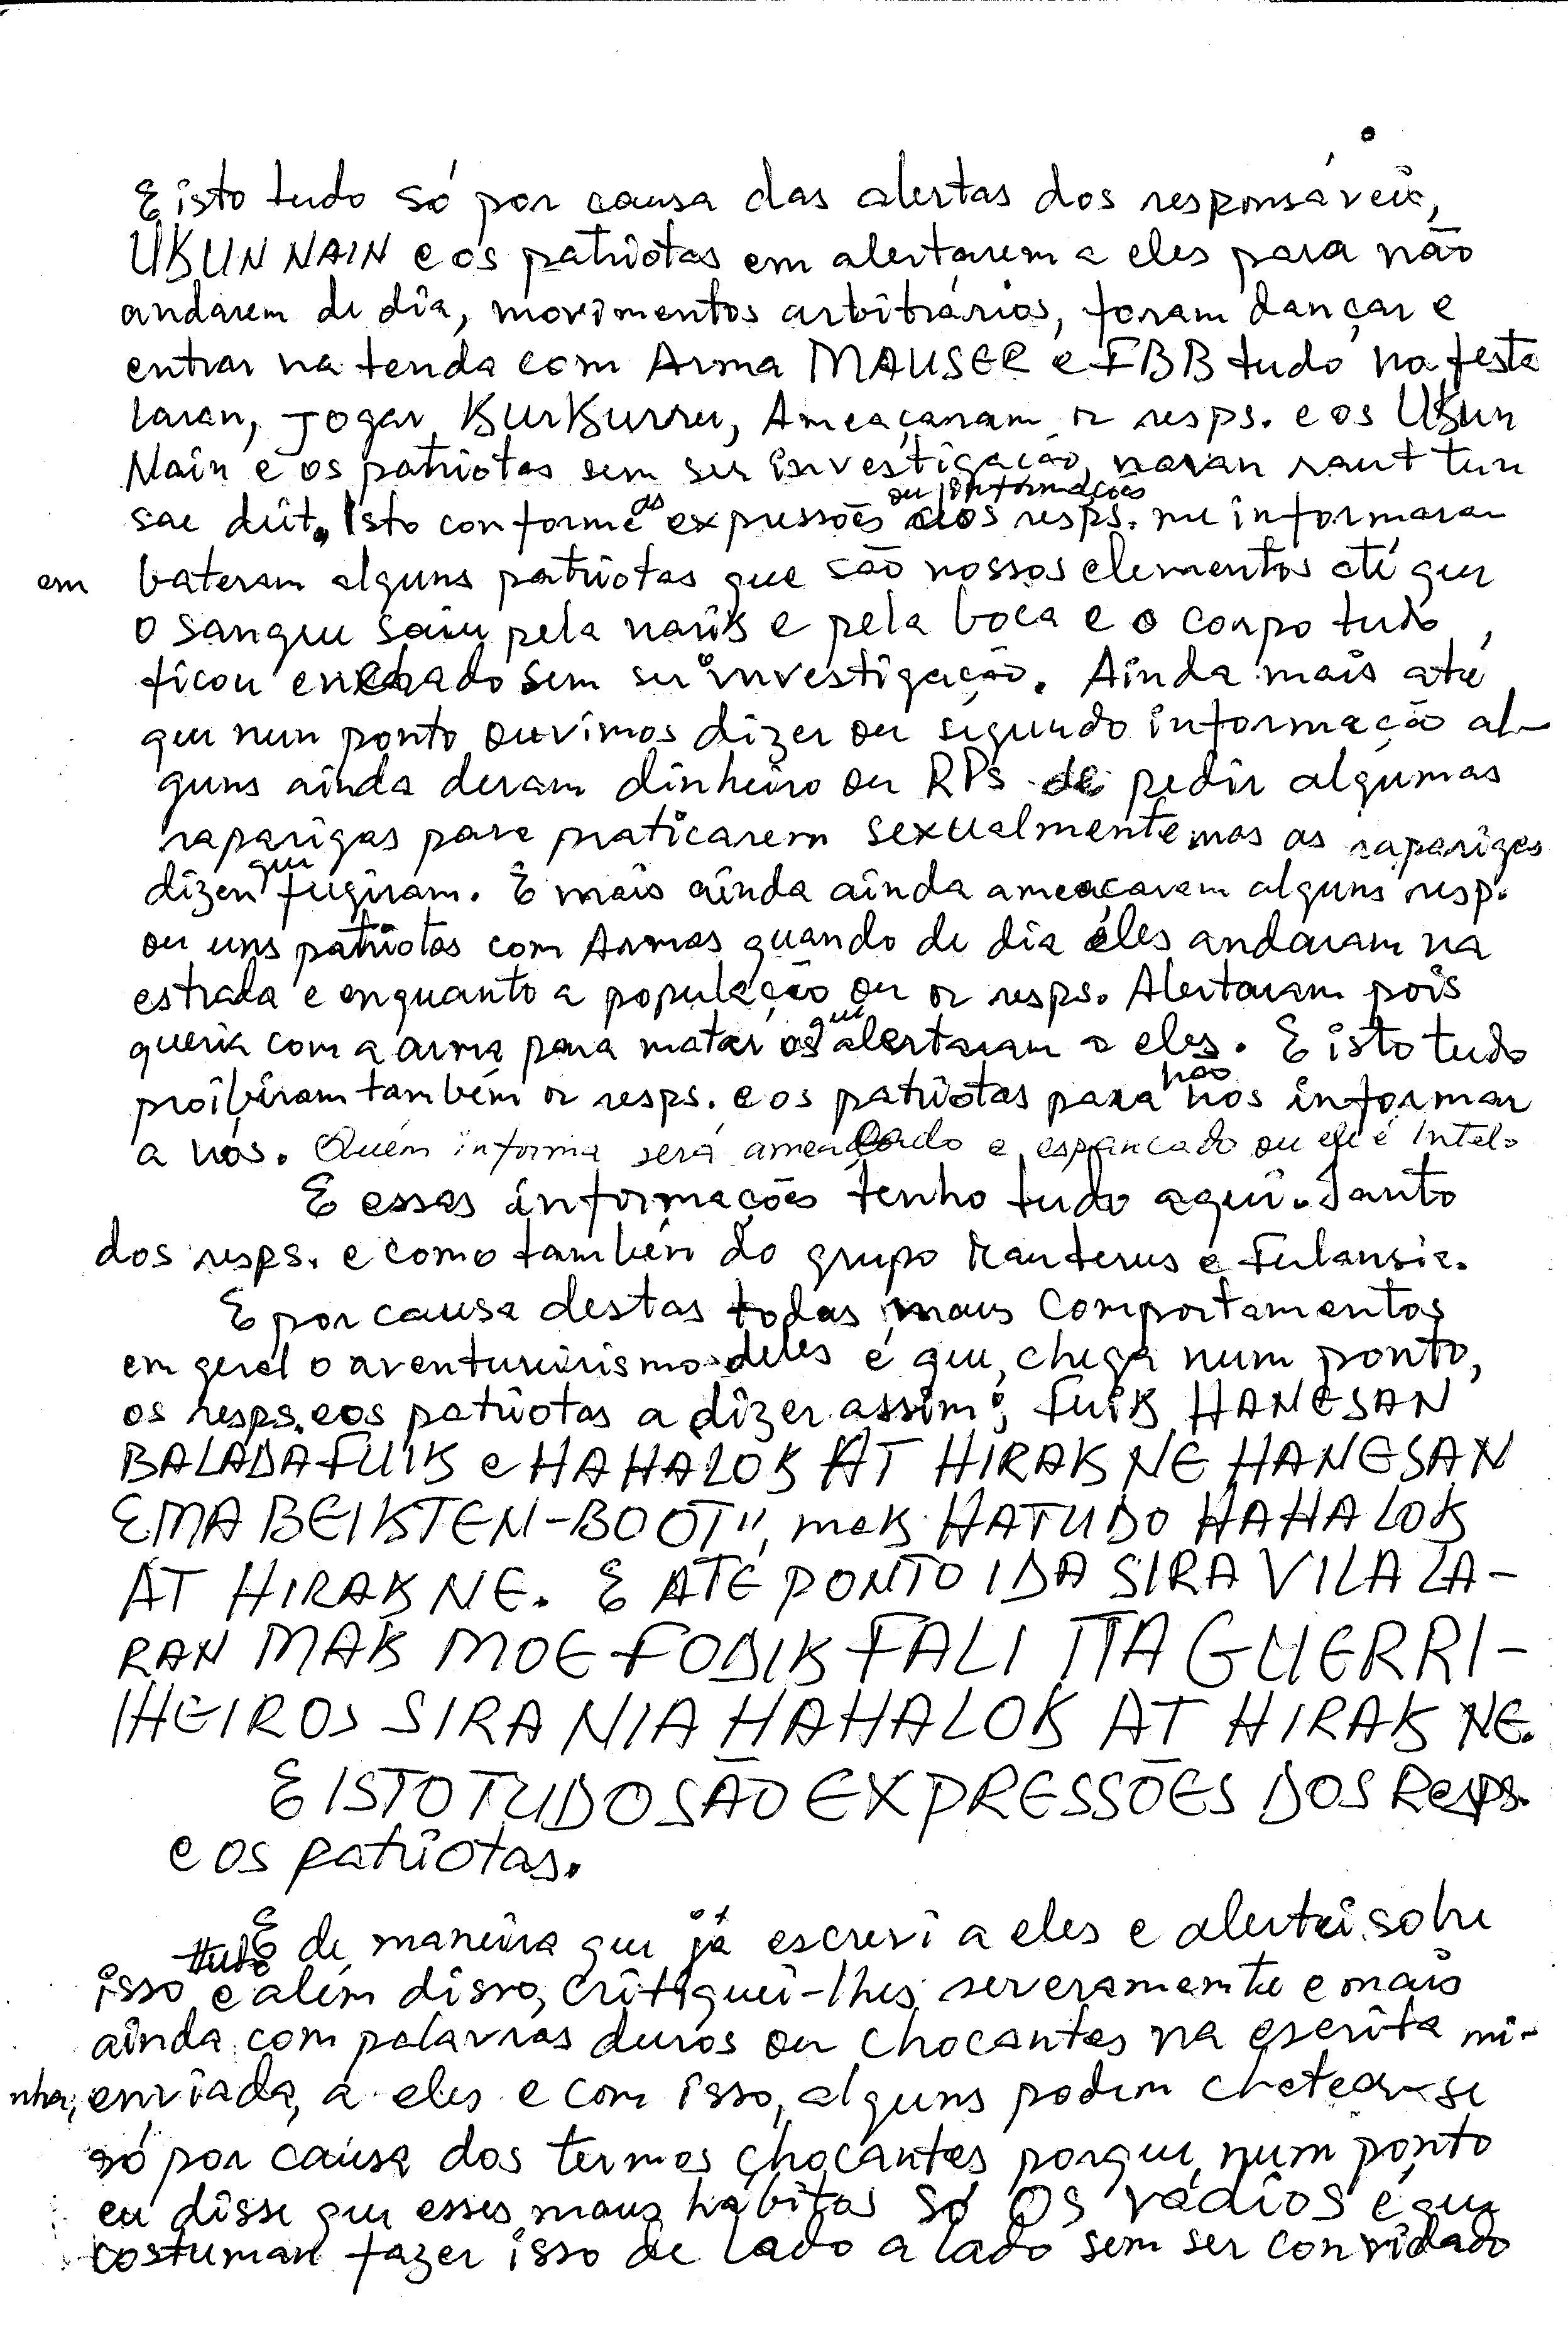 E isto tudo só por causa das alertas dos responsáveis,
UKUN NAIN e os patriotas em alertarem a eles para não
andarem de dia, movimentos arbitrários, foram dançar e
entrar na tenda com Arma MAUSER e FBB tudo na festa
laran, jogar KurKurru, Ameaçaram or resps. e os UKun
Nain e os patriotas sem ser investigação, naran raut tun
ou informações
sae deit. Isto conforme as expressões dos resps. me informaram
em bateram alguns patriotas que são nossos elementos até que
o sangue saiu pela naris e pela boca e o corpo tudo,
ficou enchado sem ser investigação. Ainda mais até
que num ponto ouvimos dizer ou segundo informação al-
guns ainda deram dinheiro ou RPs de pedir algumas
raparigas para praticarem sexualmente mas as raparigas
dizem que fugiram. E mais ainda ainda ameaçaram alguns resp.
ou uns patriotas com Armas quando de dia eles andaram na
estrada e enquanto a população ou or resps. Alertaram pois
queria com a arma para matar os que alertaram a eles. E isto tudo
proibiram também or resps. e os patriotas para não nos informar
a nós. Quem informa será ameaçado e espancado ou ele é Intel.
E essas informações tenho tudo aqui. Tanto
dos resps. e como também do grupo Manterus e Fulansia.
E por causa destas todas maus comportamentos
em geral o aventureirismo deles é que, chega num ponto,
os resps. e os patriotas a dizer assim; FuiK HANESAN
BALADA FUIK e HAHALOK AT HIRAK NE HANESAN
EMA BEIKTEN-BOOT", mak HATUDO HAHALOK
AT HIRAK NE. E ATÉ PONTO IDA SIRA VILA LA-
RAN MAK MOE FODIK FALI ITA GUERRI-
LHEIROS SIRA NIA HAHALOK AT HIRAK NE.
E ISTO TUDO SÃO EXPRESSÕES DOS Resps.
e os patriotas.
E de maneira que já escrevi a eles e alertei sobre
isso e além disso, critiquei-lhes severamente e mais
ainda com palavras duros ou chocantes na escrita mi-
nha, enviada, a eles e com isso, alguns podem chatear-se
só por causa dos termos chocantes porque, num ponto
eu disse que esses maus hábitos só os vádios é que
costumam fazer isso de lado a lado sem ser convidado